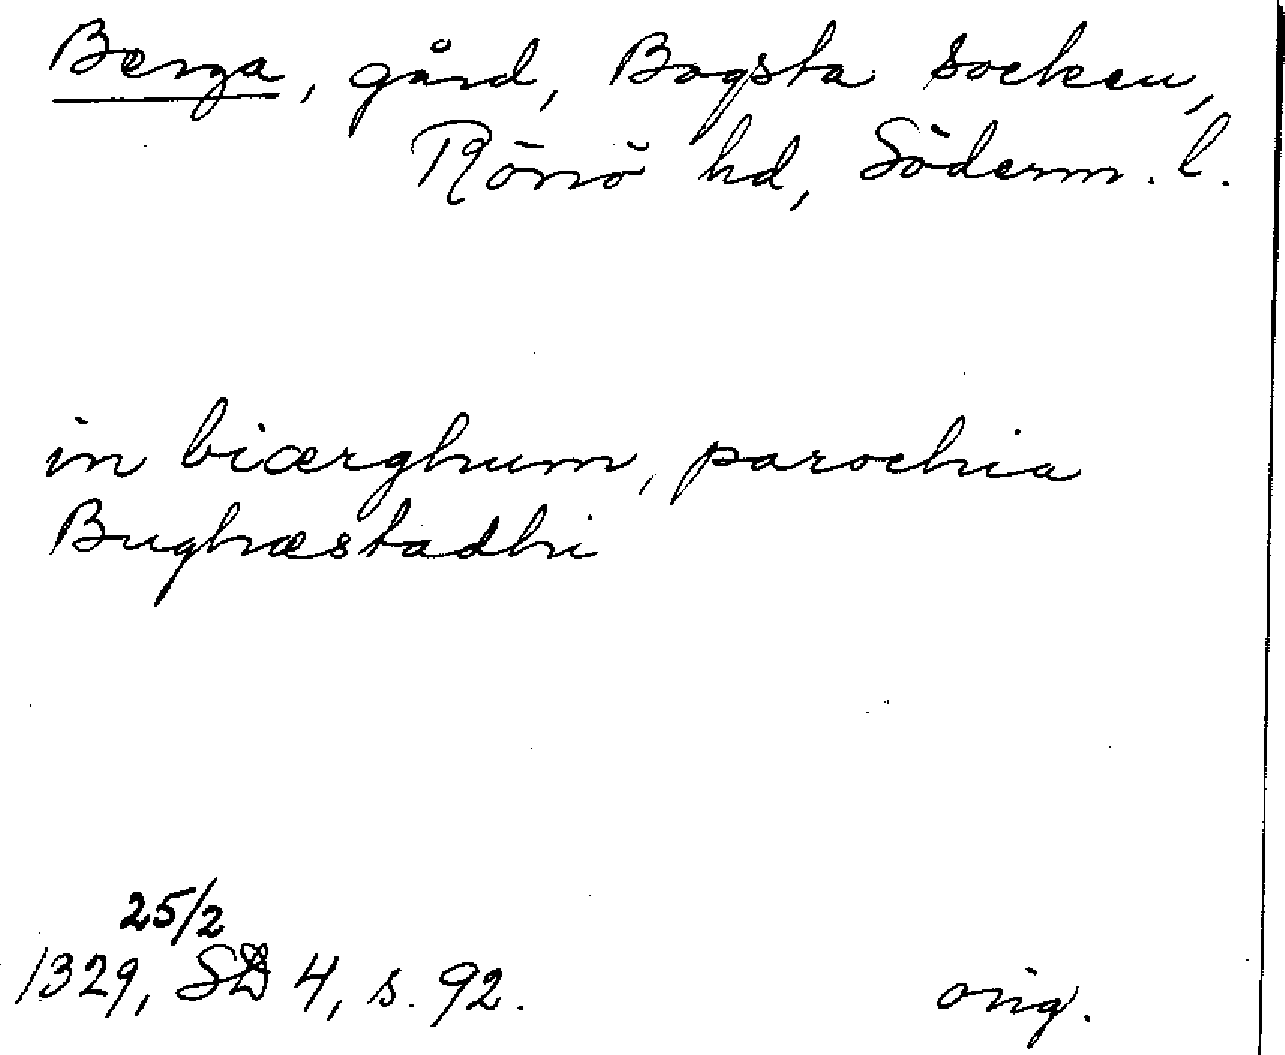 Berga, gård, Bogsta socken,
Rönö hd, Söderm. l.
in biærghum, parochia
Bughæstadhi
25/2
1329, SD 4, s. 92.
orig.